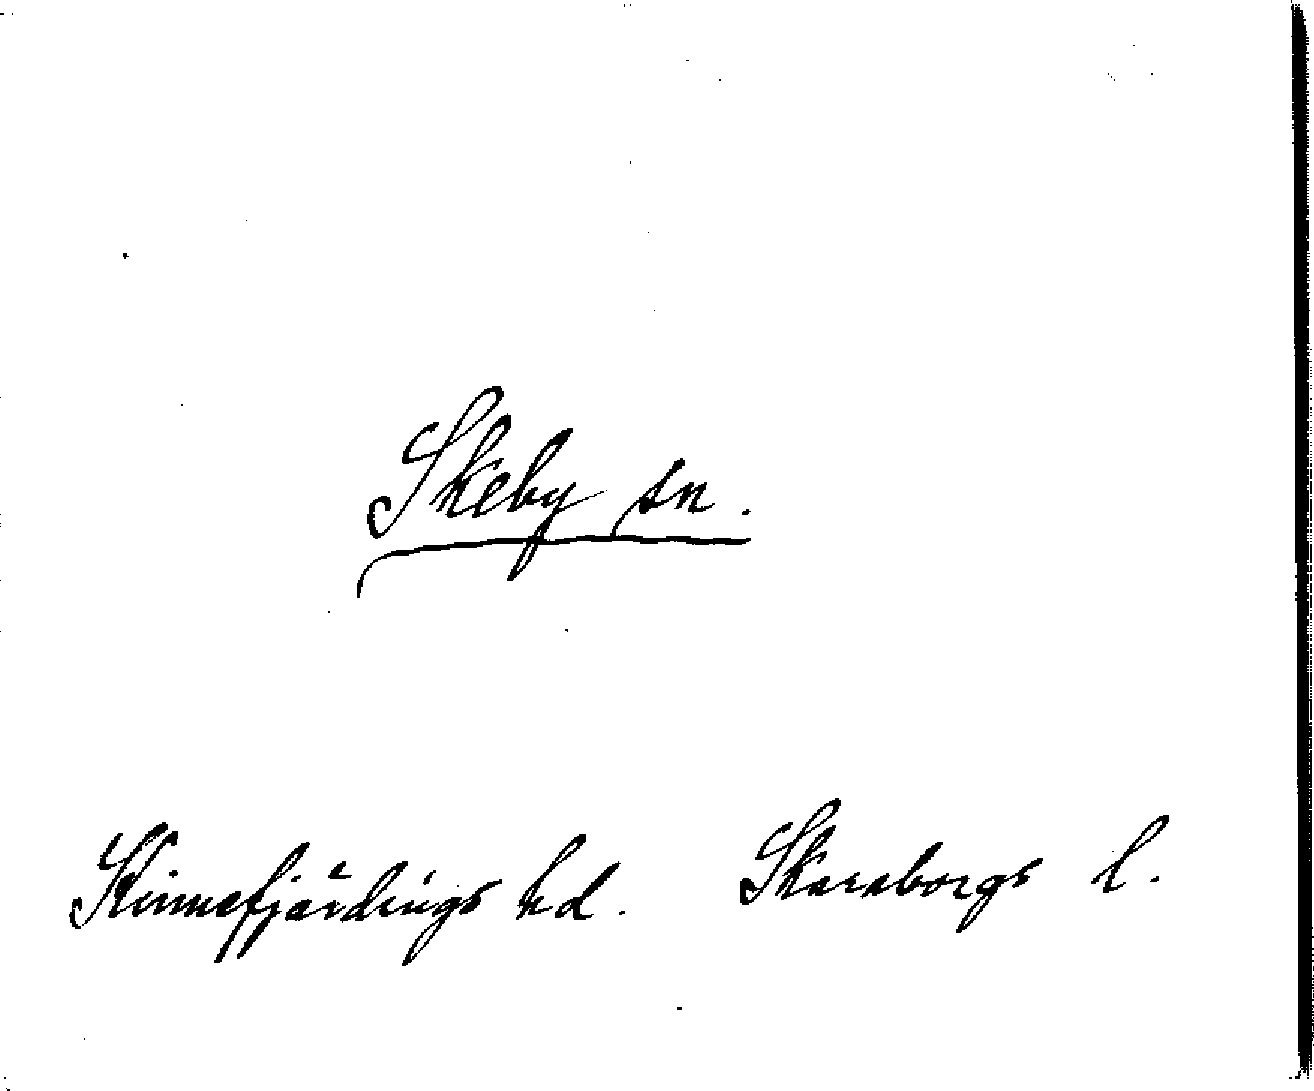 Skeby sn.
Kinnefjärdings hd. Skaraborgs l.